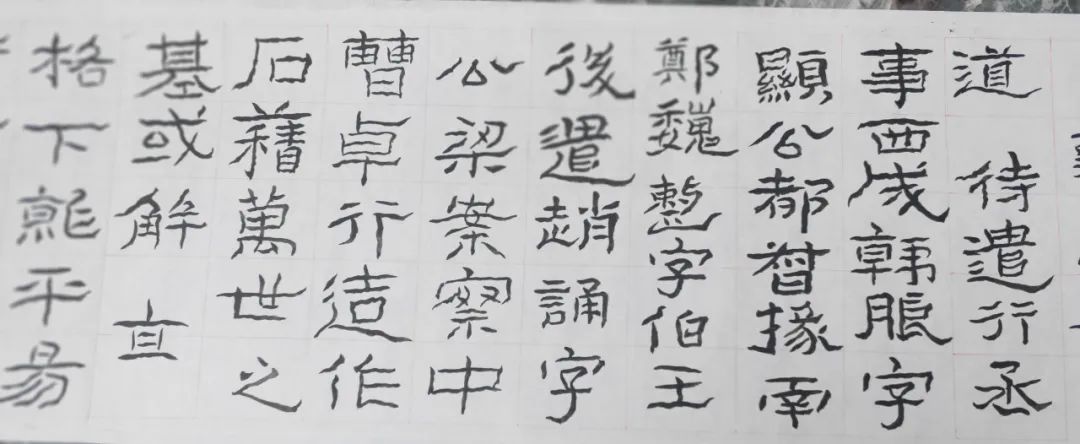 道 待遣行丞
事西成韓朖字
顯公都督掾南
鄭魏整字伯王
後遣趙誦字
公梁案察中
曹卓行造作
石藉萬世之
基或解
格下就平昜